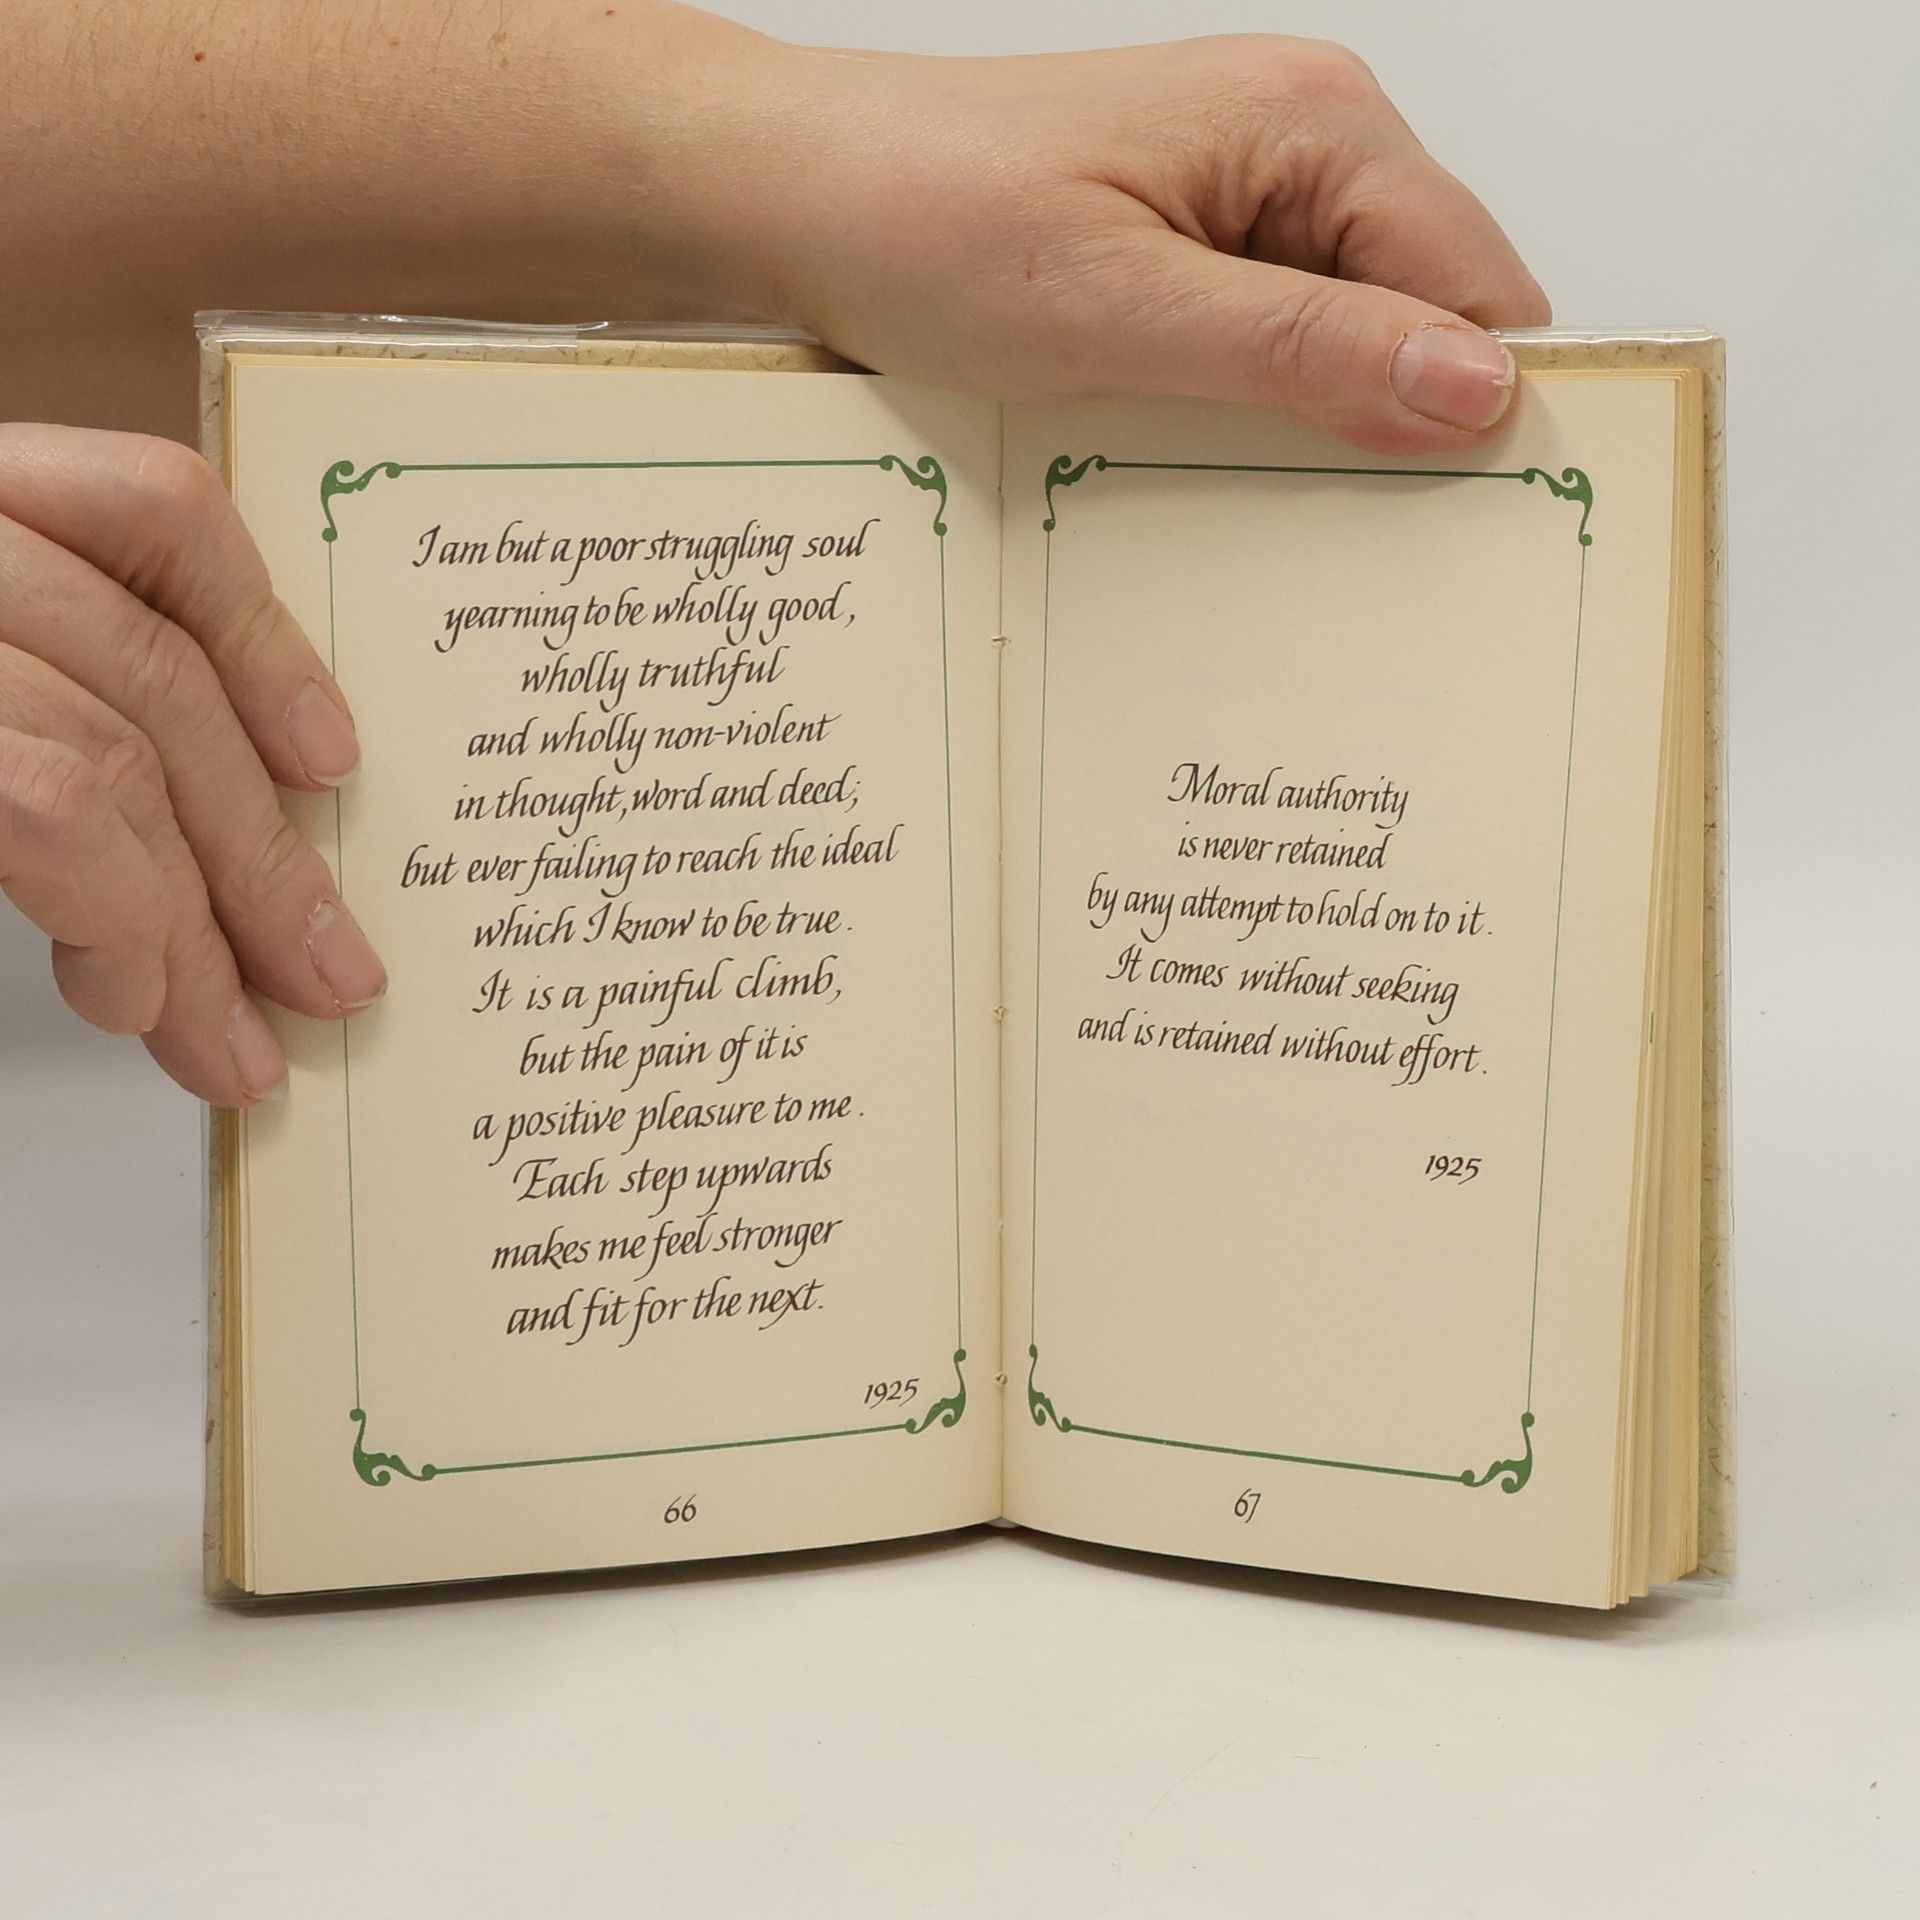 I am but a poor struggling soul
yearning to be wholly good,
wholly truthful
and wholly non-violent
in thought, word and deed;
but ever failing to reach the ideal
which I know to be true.
It is a painful climb,
but the pain of it is
a positive pleasure to me.
Each step upwards
makes me feel stronger
and fit for the next.
1925
66
Moral authority
is never retained
by any attempt to hold on to it.
It comes without seeking
and is retained without effort.
1925
67